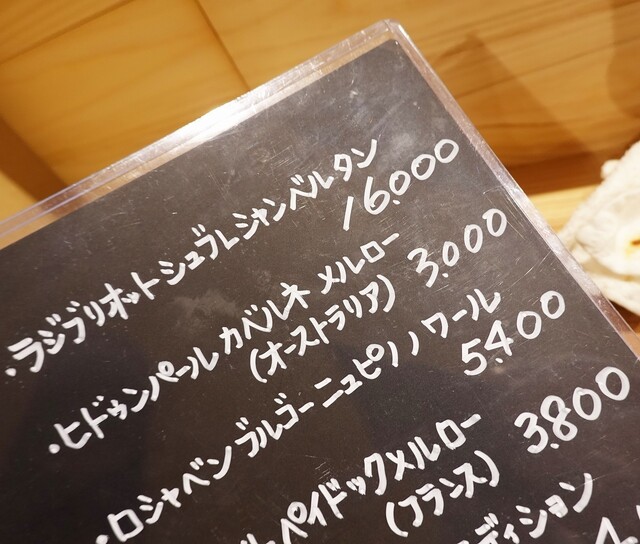 ・ラジブリオットジュブレシャンベルタン
16.000
・ヒドゥンパール カベルネ メルロー
(オーストラリア) 3.000
・ロシャベン ブルゴーニュピノノワール
5.400
ペイドックメルロー
(フランス) 3.800
ディション